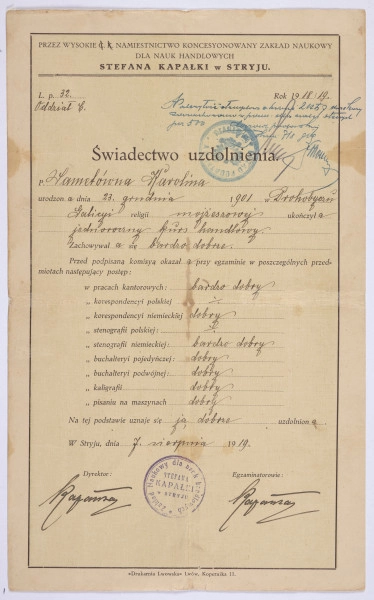 PRZEZ WYSOKIE c. k. NAMIESTNICTWO KONCESYONOWANY ZAKŁAD NAUKOWY
DLA NAUK HANDLOWYCH
STEFANA KAPAŁKI w STRYJU.
L. p. 32. Rok 1918/19.
Oddział C.
Świadectwo uzdolnienia.
P. Hametówna Karolina
urodzona dnia 23. grudnia 1901 w Drohobyczu
Galicyi religii mojżeszowej ukończyła
jednoroczny kurs handlowy.
Zachowywał a się bardzo dobrze.
Przed podpisaną komisyą okazał a przy egzaminie w poszczególnych przed-
miotach następujący postęp:
w pracach kantorowych: bardzo dobry
„ korespondencyi polskiej -
„ korespondencyi niemieckiej dobry
„ stenografii polskiej:
„ stenografii niemieckiej: bardzo dobry
„ buchalteryi pojedyńczej: dobry
„ buchalteryi podwójnej: dobry
„ kaligrafii dobry
„ pisaniu na maszynach dobry
Na tej podstawie uznaje się ją dobrze uzdolnioną
W Stryju, dnia 7. sierpnia 1919.
Dyrektor: Egzaminatorowie:
Kapałka Kapałka
STEFANA
KAPAŁKI
STRYJU
«Drukarnia Lwowska» Lwów, Kopernika 11.